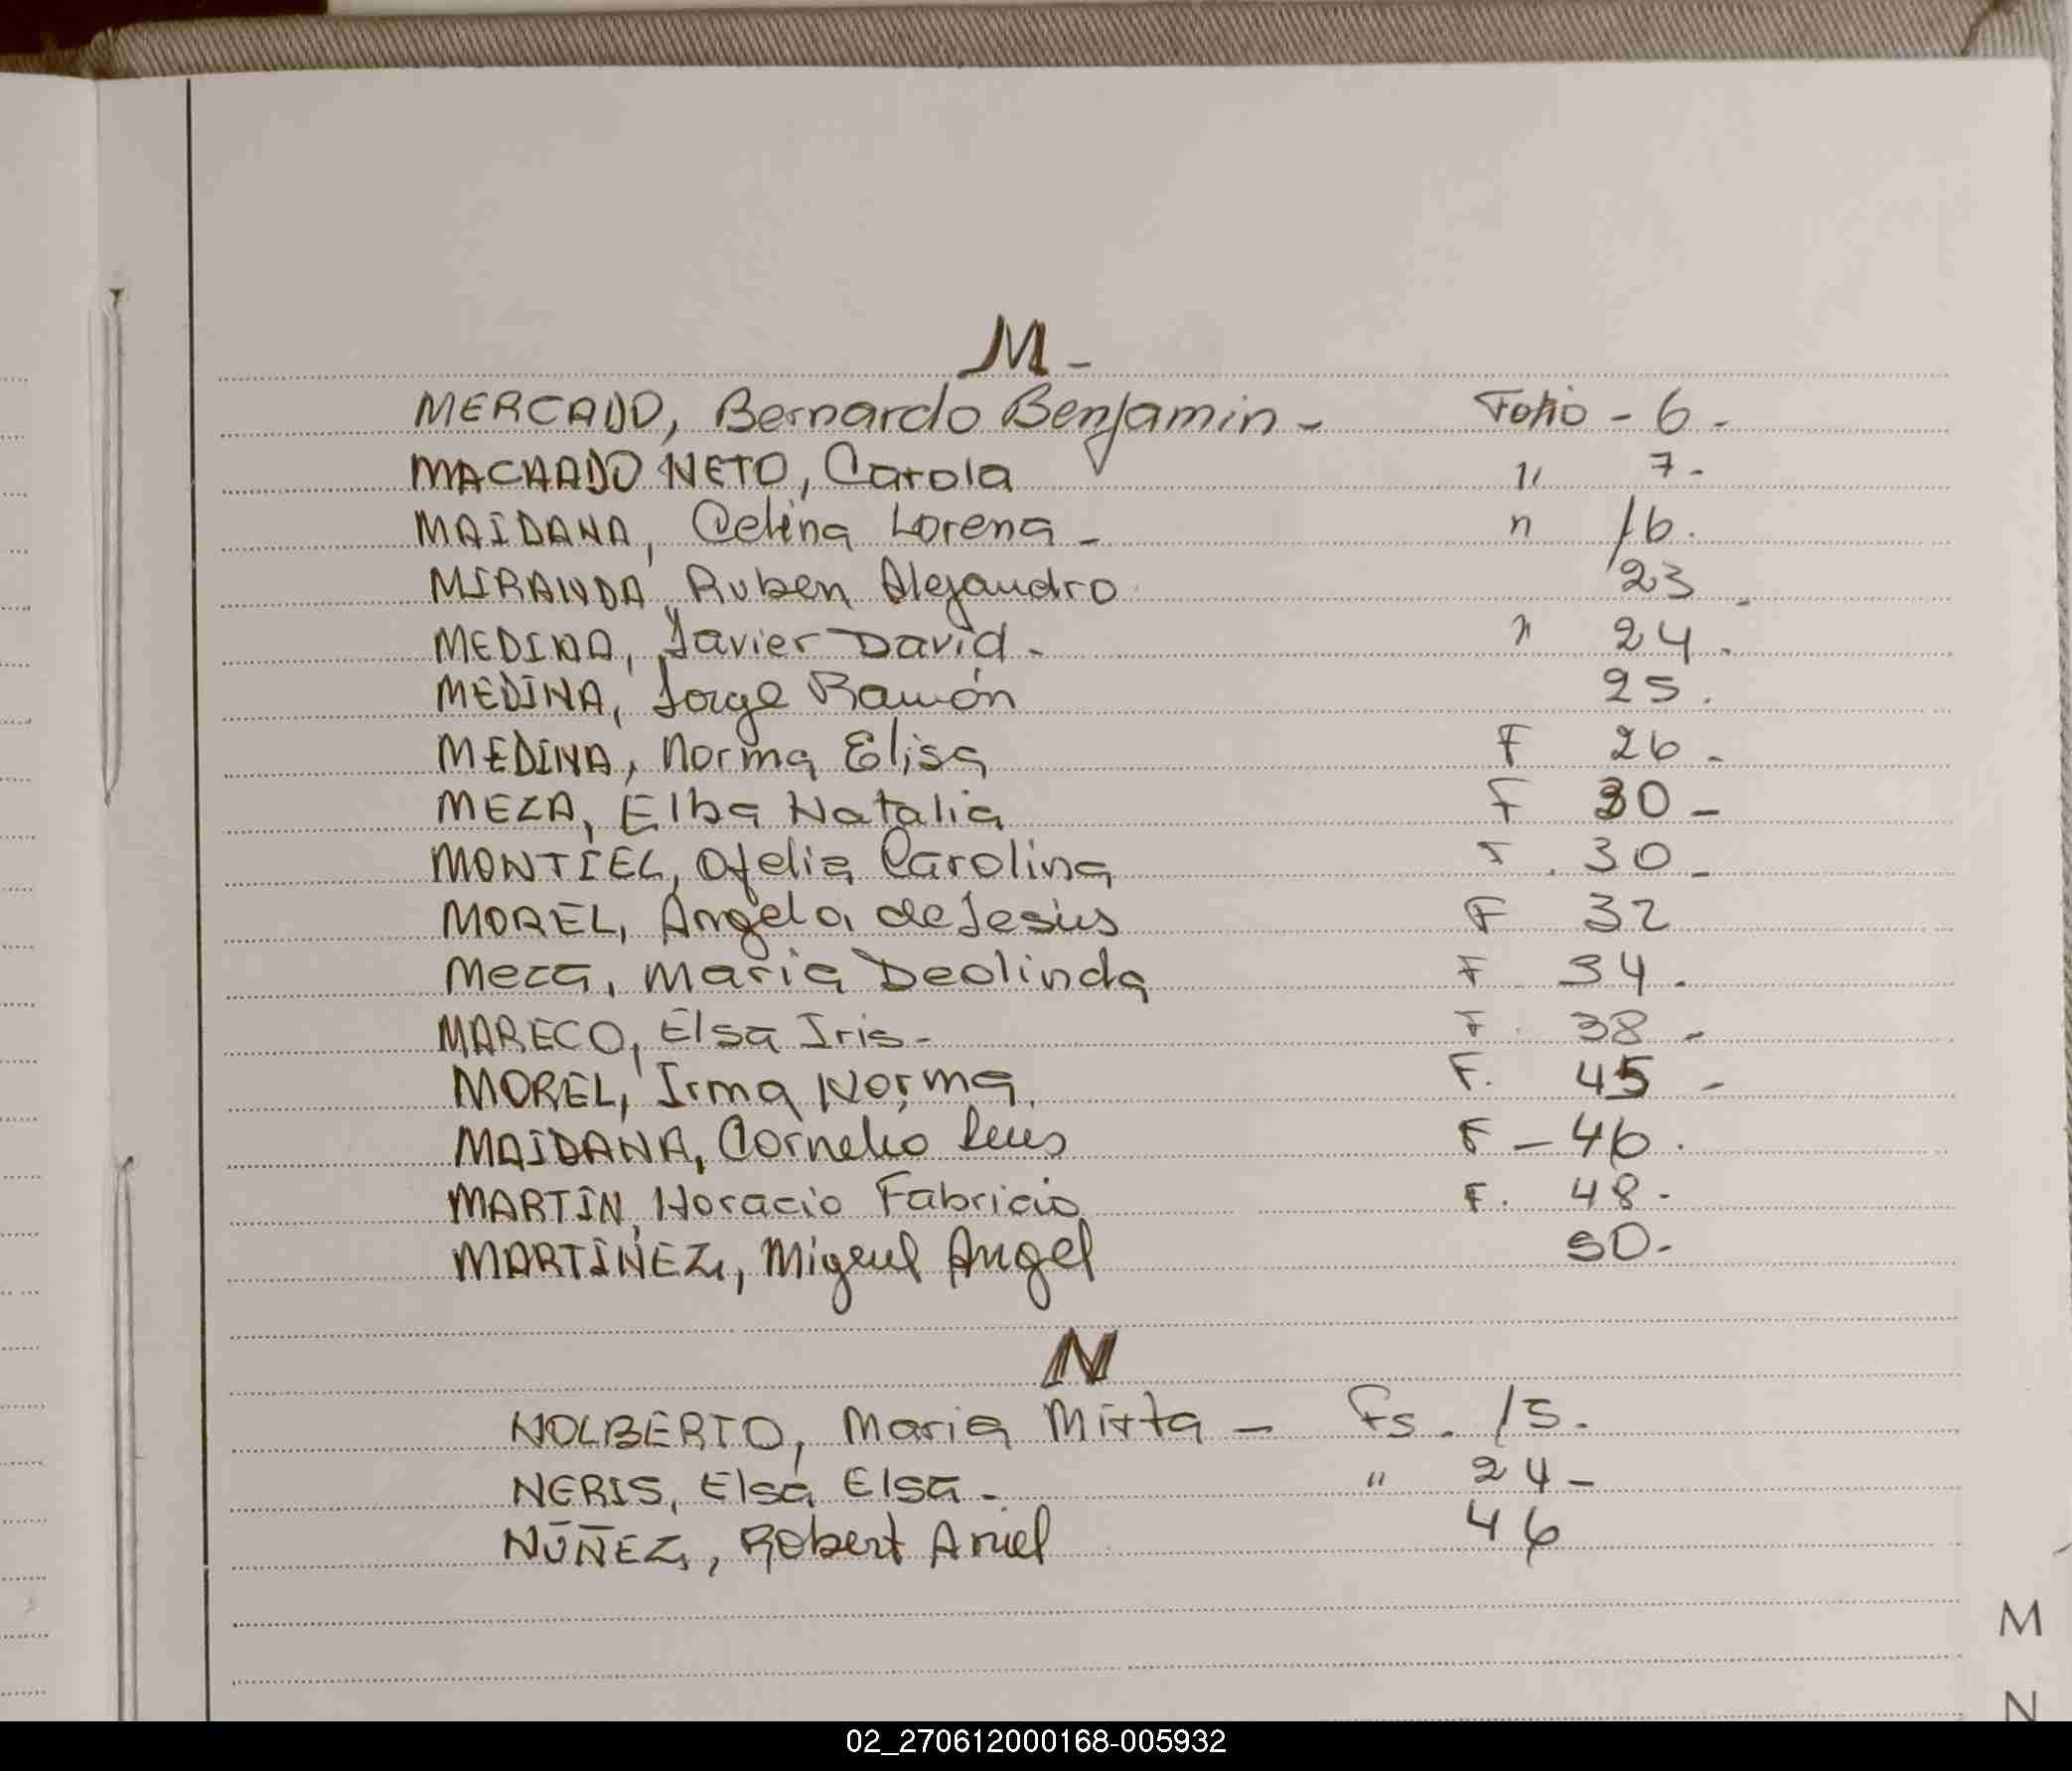 M-
MERCADO, Bernardo Benjamin - Folio - 6 -
MACHADO NETO, Carola " 7 -
MAIDANA, Celina Lorena - " 16.
MIRANDA, Ruben Alejandro 23 -
MEDINA, Javier David - " 24 -
MEDINA, Jorge Ramón 25.
MEDINA, Norma Elisa F 26 -
MEZA, Elba Natalia F 30 -
MONTIEL, Ofelia Carolina F. 30 -
MOREL, Angela de Jesús F 32
Meza, Maria Deolinda F 34.
MARECO, Elsa Iris - F. 38 -
MOREL, Irma Norma. F. 45 -
MAIDANA, Cornelio Luis F - 46.
MARTIN, Horacio Fabricio F. 48 -
MARTÍNEZ, Miguel Angel 50 -
N
NOLBERTO, Maria Mirta - Fs. 15.
NERIS, Elsa Elsa - " 24 -
NÚÑEZ, Robert Ariel 46
M
N
02_270612000168-005932